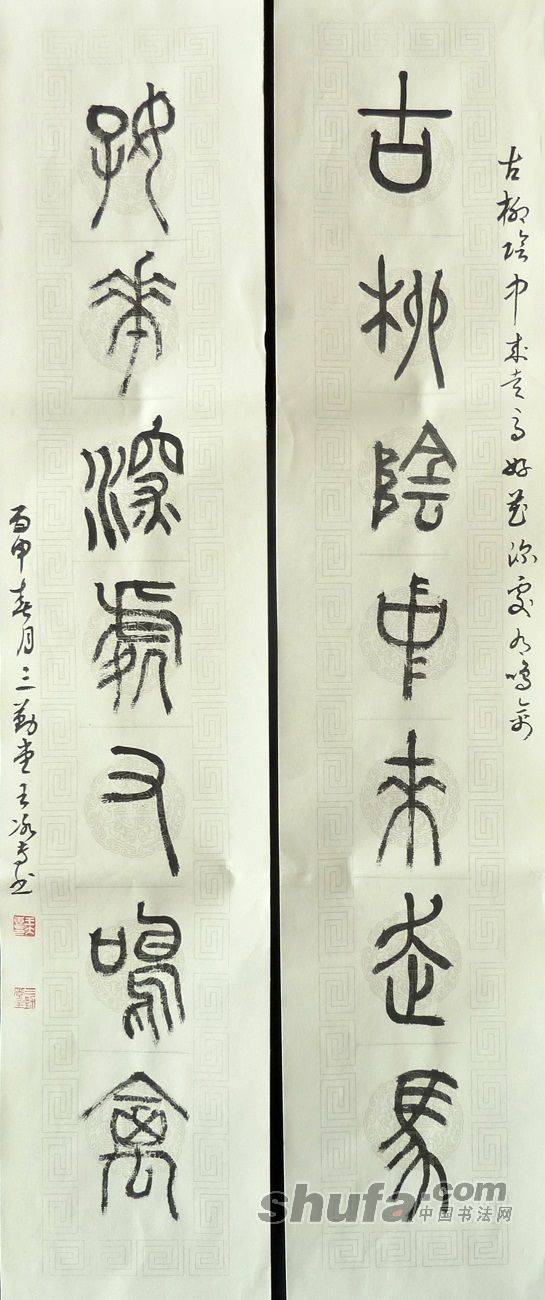 古柳陰中来走馬好花深處又鳴禽
古柳陰中來走馬
好華深處又鳴禽
丙申春月三勤堂王
shufa.com
中国书法网